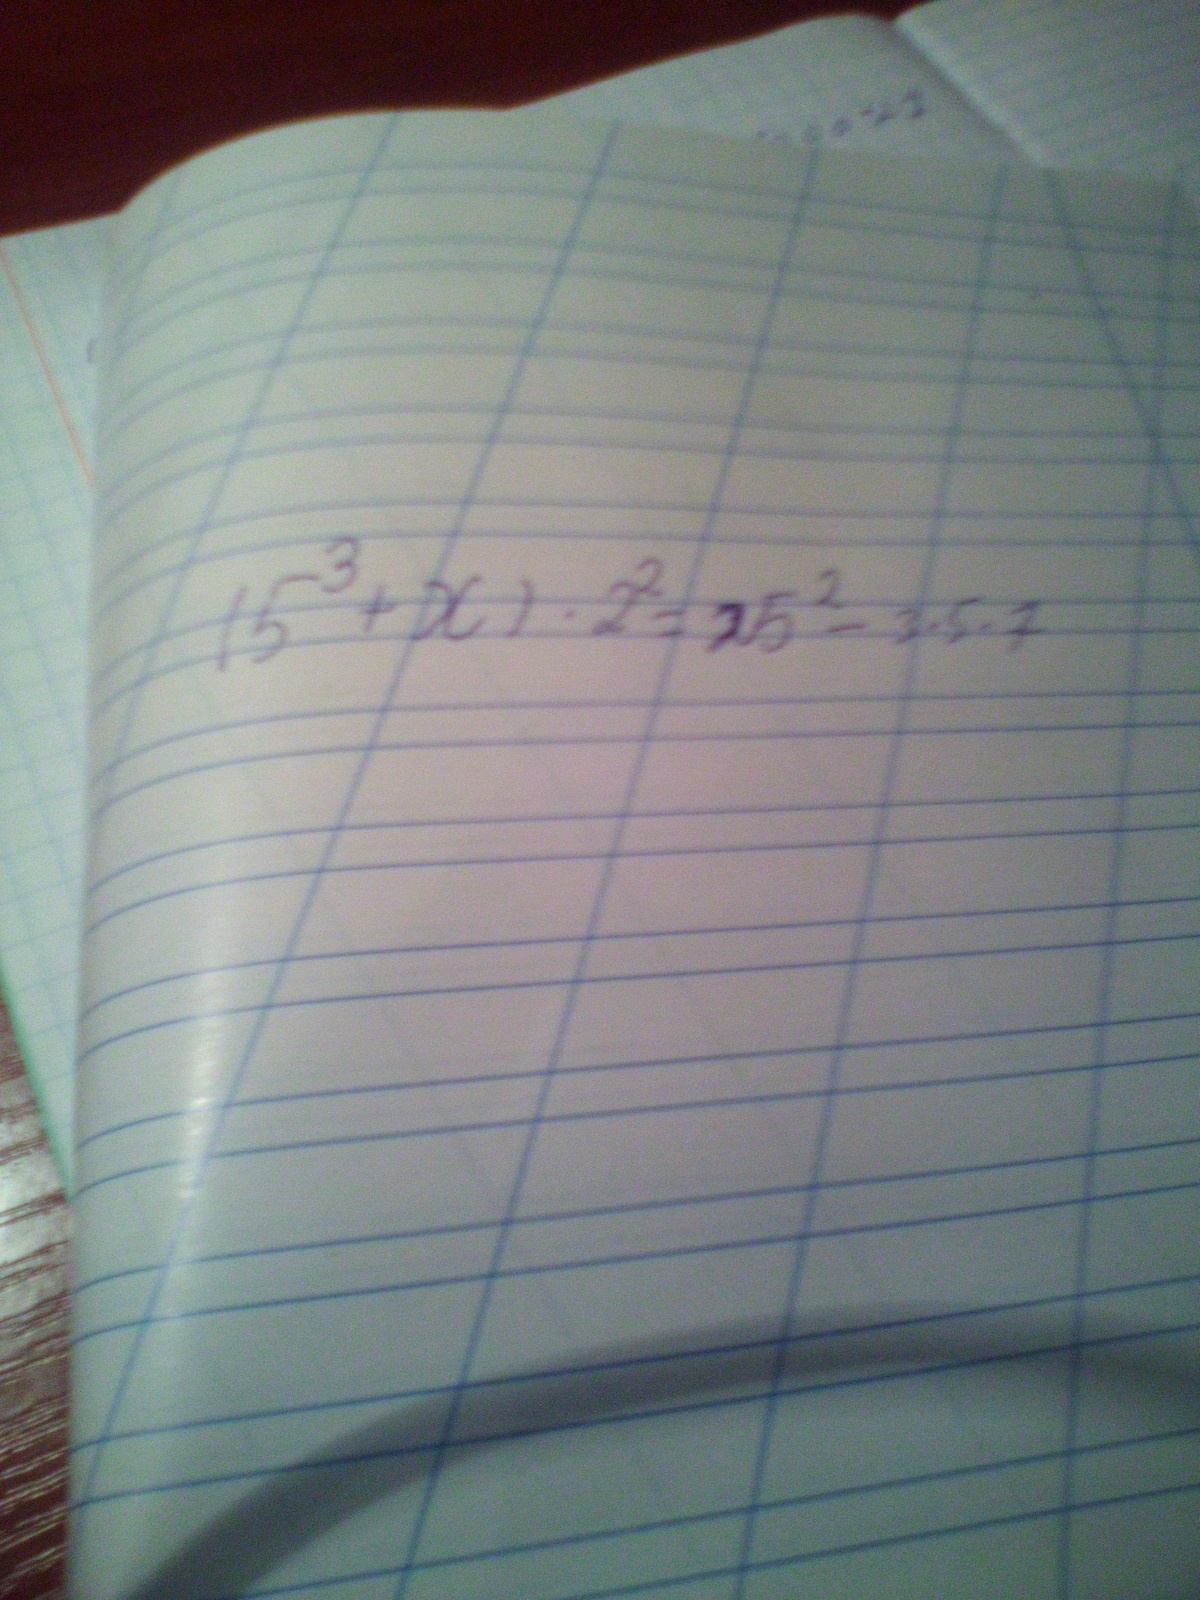 (5³ + x) · 2² = 25² - 3·5·7